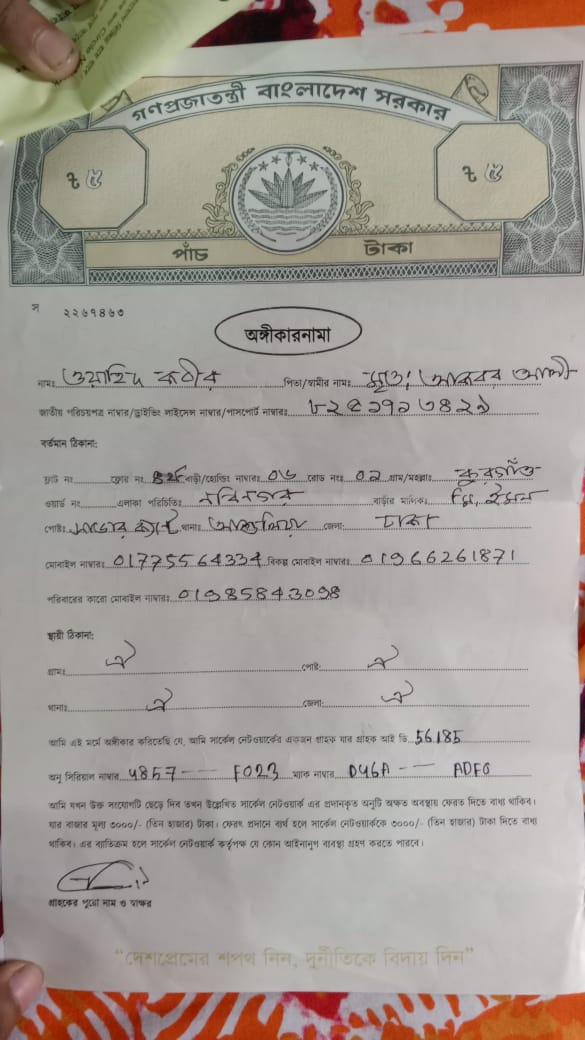 গণপ্রজাতন্ত্রী বাংলাদেশ সরকার
৳ ৫ ৳ ৫
পাঁচ টাকা
স ২২৬৭৪৬৩
অঙ্গীকারনামা
নামঃ ওয়াহিদ কবীর পিতা/স্বামীর নামঃ মৃতঃ আকবর আলী
জাতীয় পরিচয়পত্র নাম্বার/ড্রাইভিং লাইসেন্স নাম্বার/পাসপোর্ট নাম্বারঃ ৮২৫১৭১৩৪২৯
বর্তমান ঠিকানা:
ফ্লাট নং ফ্লোর নং বাড়ী/হোল্ডিং নাম্বারঃ ০৬ রোড নংঃ ০২ গ্রাম/মহল্লাঃ
ওয়ার্ড নং এলাকা পরিচিতিঃ বাড়ীর মালিকঃ মি, ইমন
পোষ্টঃ সাভার ক্যান্ট থানাঃ আশুলিয়া জেলা: ঢাকা
মোবাইল নাম্বারঃ 01775564334 বিকল্প মোবাইল নাম্বারঃ 01966261871
পরিবারের কারো মোবাইল নাম্বারঃ 01985843098
স্থায়ী ঠিকানা:
গ্রামঃ ঐ পোষ্ট: ঐ
থানাঃ ঐ জেলা: ঐ
আমি এই মর্মে অঙ্গীকার করিতেছি যে, আমি সার্কেল নেটওয়ার্কের একজন গ্রাহক যার গ্রাহক আই ডি. 56185
অনু সিরিয়াল নাম্বার 4857 --- F023 ম্যাক নাম্বার D46A -- ADF0
আমি যখন উক্ত সংযোগটি ছেড়ে দিব তখন উল্লেখিত সার্কেল নেটওয়ার্ক এর প্রদানকৃত অনুটি অক্ষত অবস্থায় ফেরত দিতে বাধ্য থাকিব।
যার বাজার মূল্য ৩০০০/- (তিন হাজার) টাকা। ফেরৎ প্রদানে ব্যর্থ হলে সার্কেল নেটওয়ার্ককে ৩০০০/- (তিন হাজার) টাকা দিতে বাধ্য
থাকিব। এর ব্যতিক্রম হলে সার্কেল নেটওয়ার্ক কর্তৃপক্ষ যে কোন আইনানুগ ব্যবস্থা গ্রহণ করতে পারবে।
গ্রাহকের পুরো নাম ও স্বাক্ষর
“দেশপ্রেমের শপথ নিন, দুর্নীতিকে বিদায় দিন”